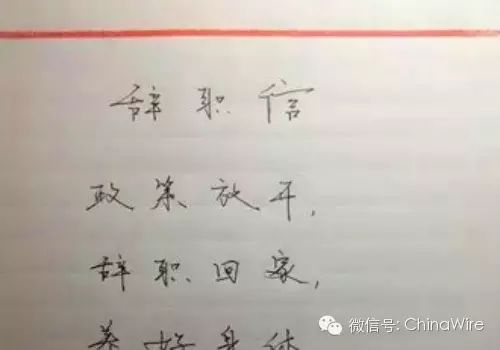 辞职信
政策放开，
辞职回家，
养好身体
微信号: ChinaWire